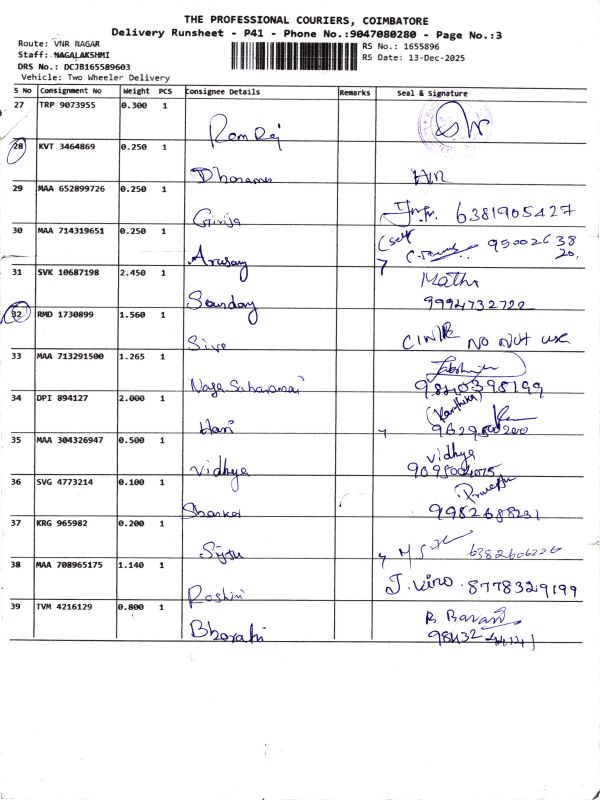 THE PROFESSIONAL COURIERS, COIMBATORE
Delivery Runsheet - P41 - Phone No.:9047080280 - Page No.:3
Route: VNR NAGAR
Staff: NAGALAKSHMI
DRS No.: DCJB165589603
Vehicle: Two Wheeler Delivery
RS No.: 1655896
RS Date: 13-Dec-2025
S No Consignment No Weight PCS Consignee Details Remarks Seal & Signature
27 TRP 9073955 0.300 1
Ram Raj
28 KVT 3464869 0.250 1
29 MAA 652899726 0.250 1
Girija 6381905427
30 MAA 714319651 0.250 1
(self
Arusay
31 SVK 10687198 2.450 1
Sounday
9994732722
32 RMD 1730899 1.560 1
Siva
33 MAA 713291500 1.265 1
9840398199
34 DPI 894127 2.000 1
(Karthika)
Hari
35 MAA 304326947 0.500 1
Vidhya
Vidhya
36 SVG 4773214 0.100 1
37 KRG 965982 0.200 1
38 MAA 708965175 1.140 1
Roshini J. Kino. 8778329199
39 TVM 4216129 0.800 1
Bharathi